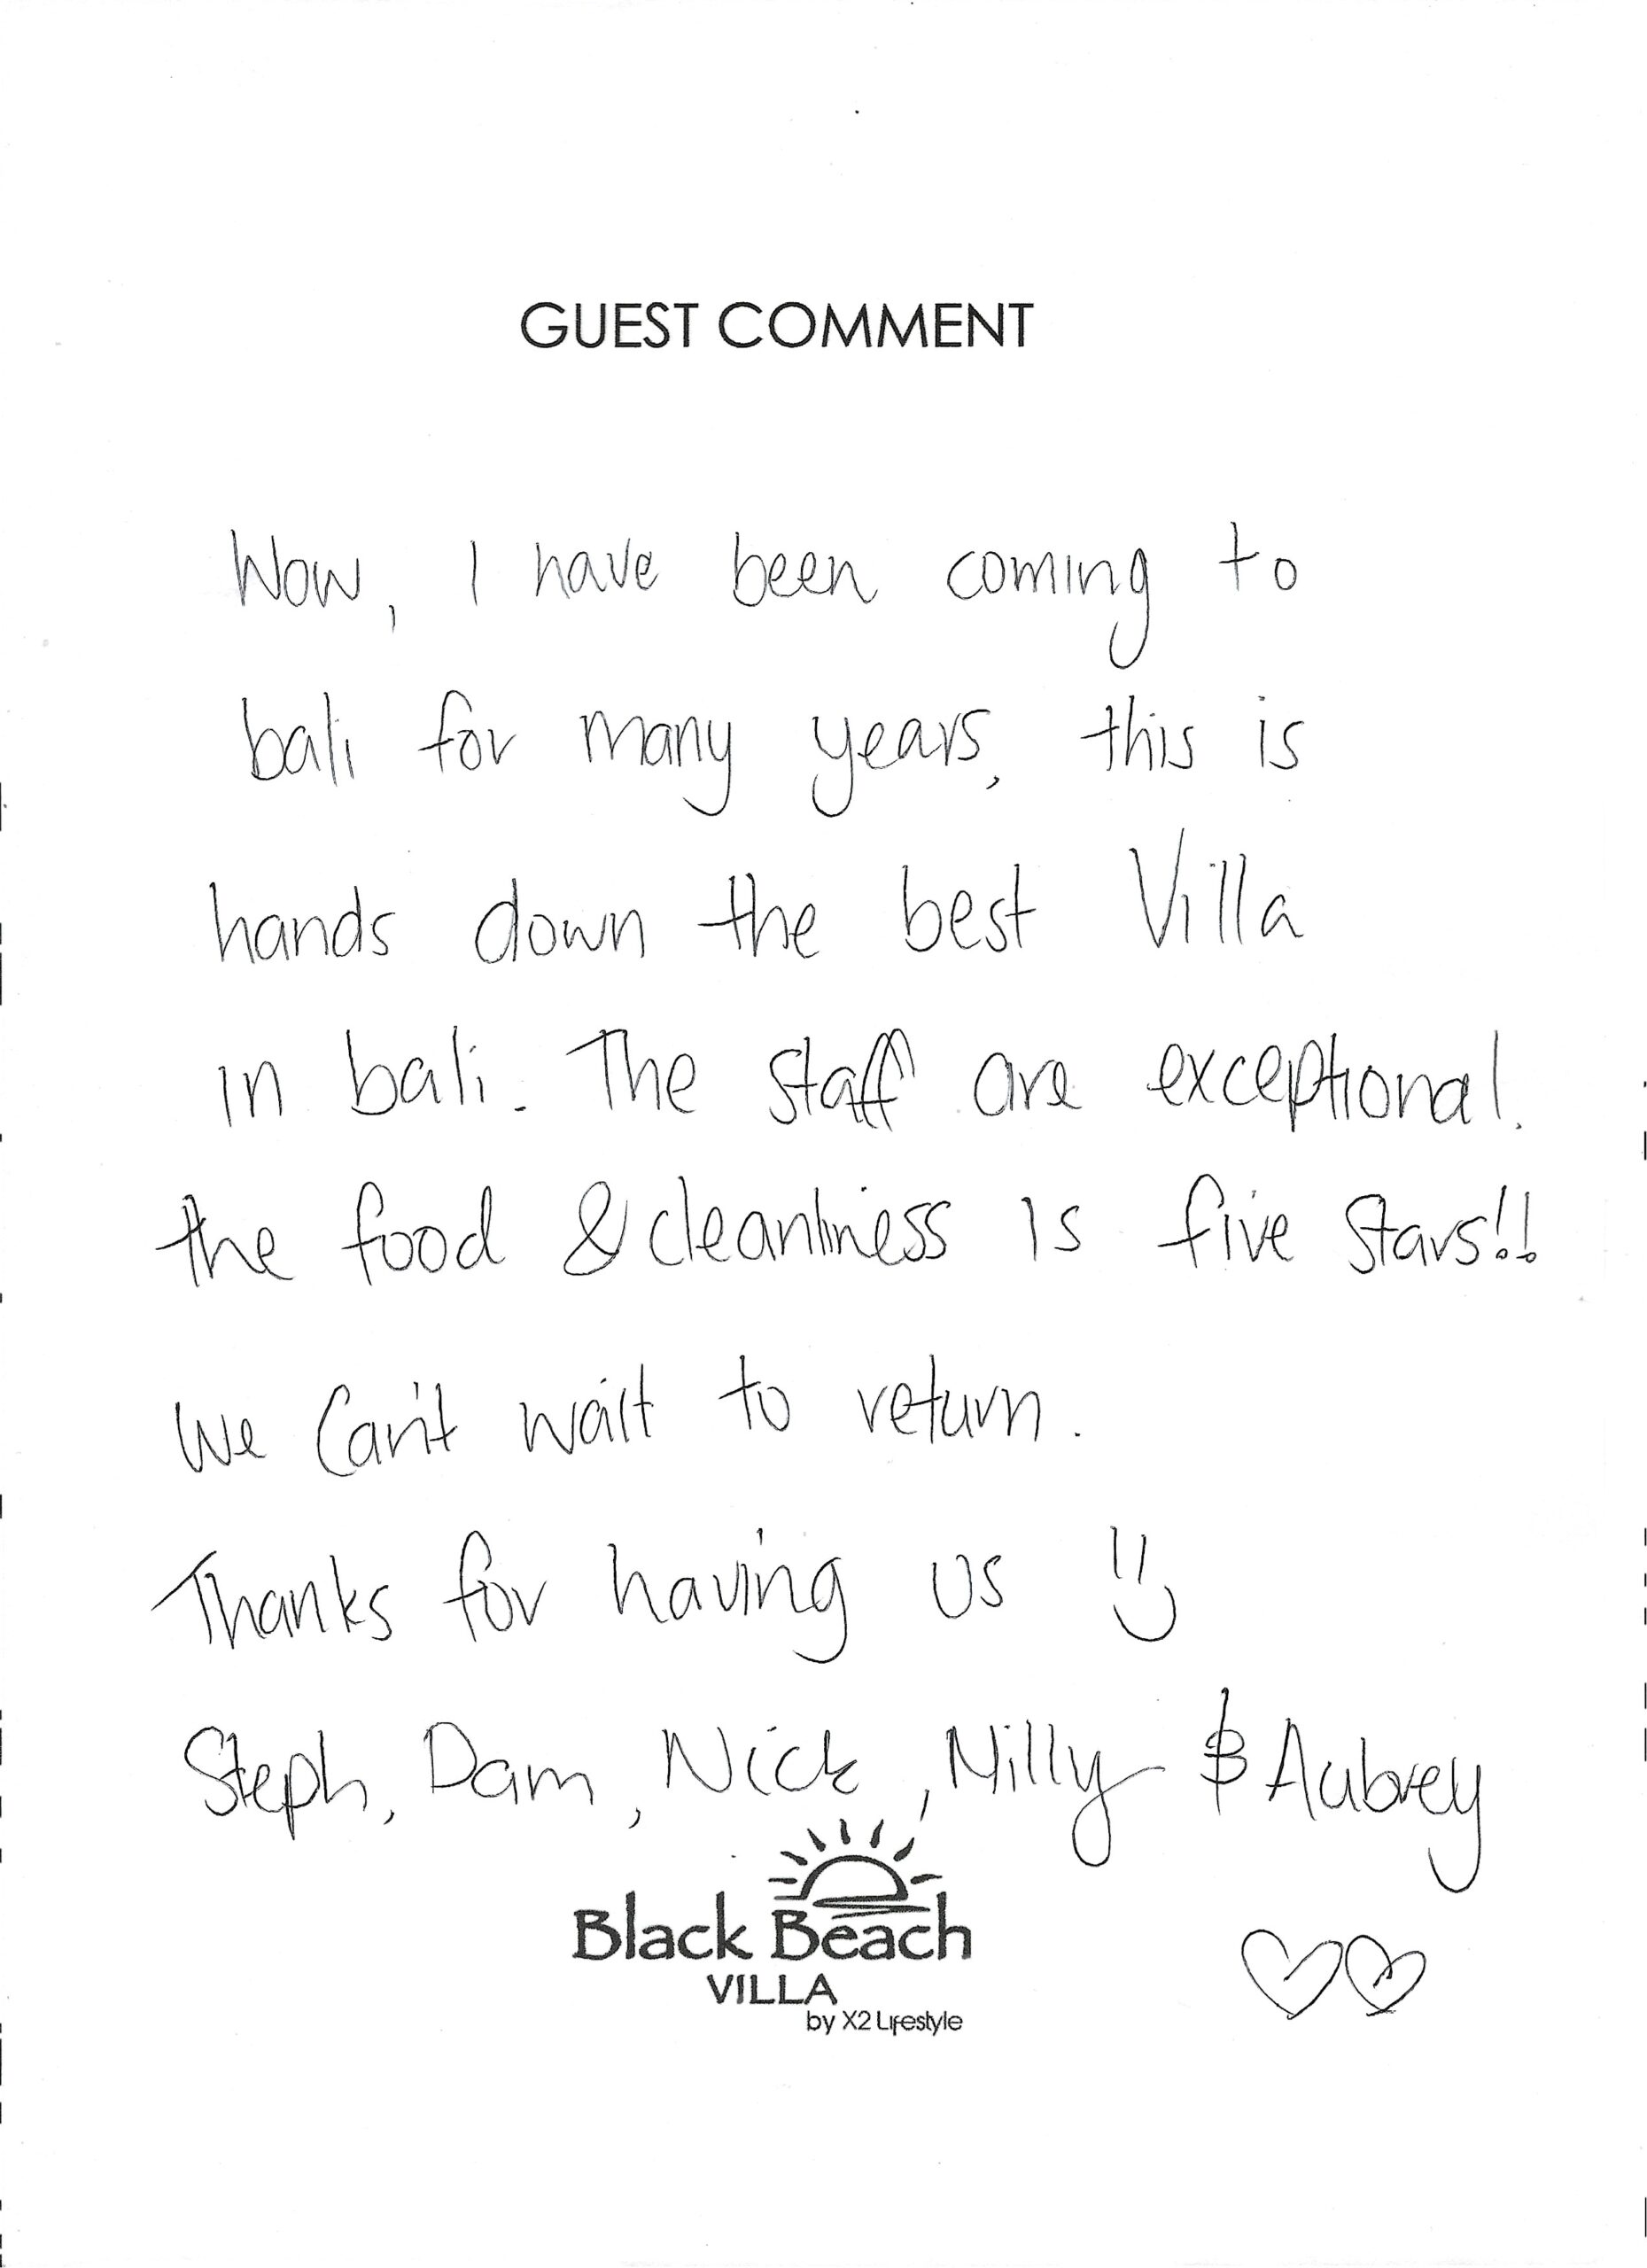 GUEST COMMENT
Wow, I have been coming to
bali for many years, this is
hands down the best Villa
in bali. The staff are exceptional.
the food & cleanliness is five stars!!
We Can't wait to return.
Thanks for having us :)
Steph, Dam, Nick, Milly & Aubrey
Black Beach
VILLA
by X2 Lifestyle